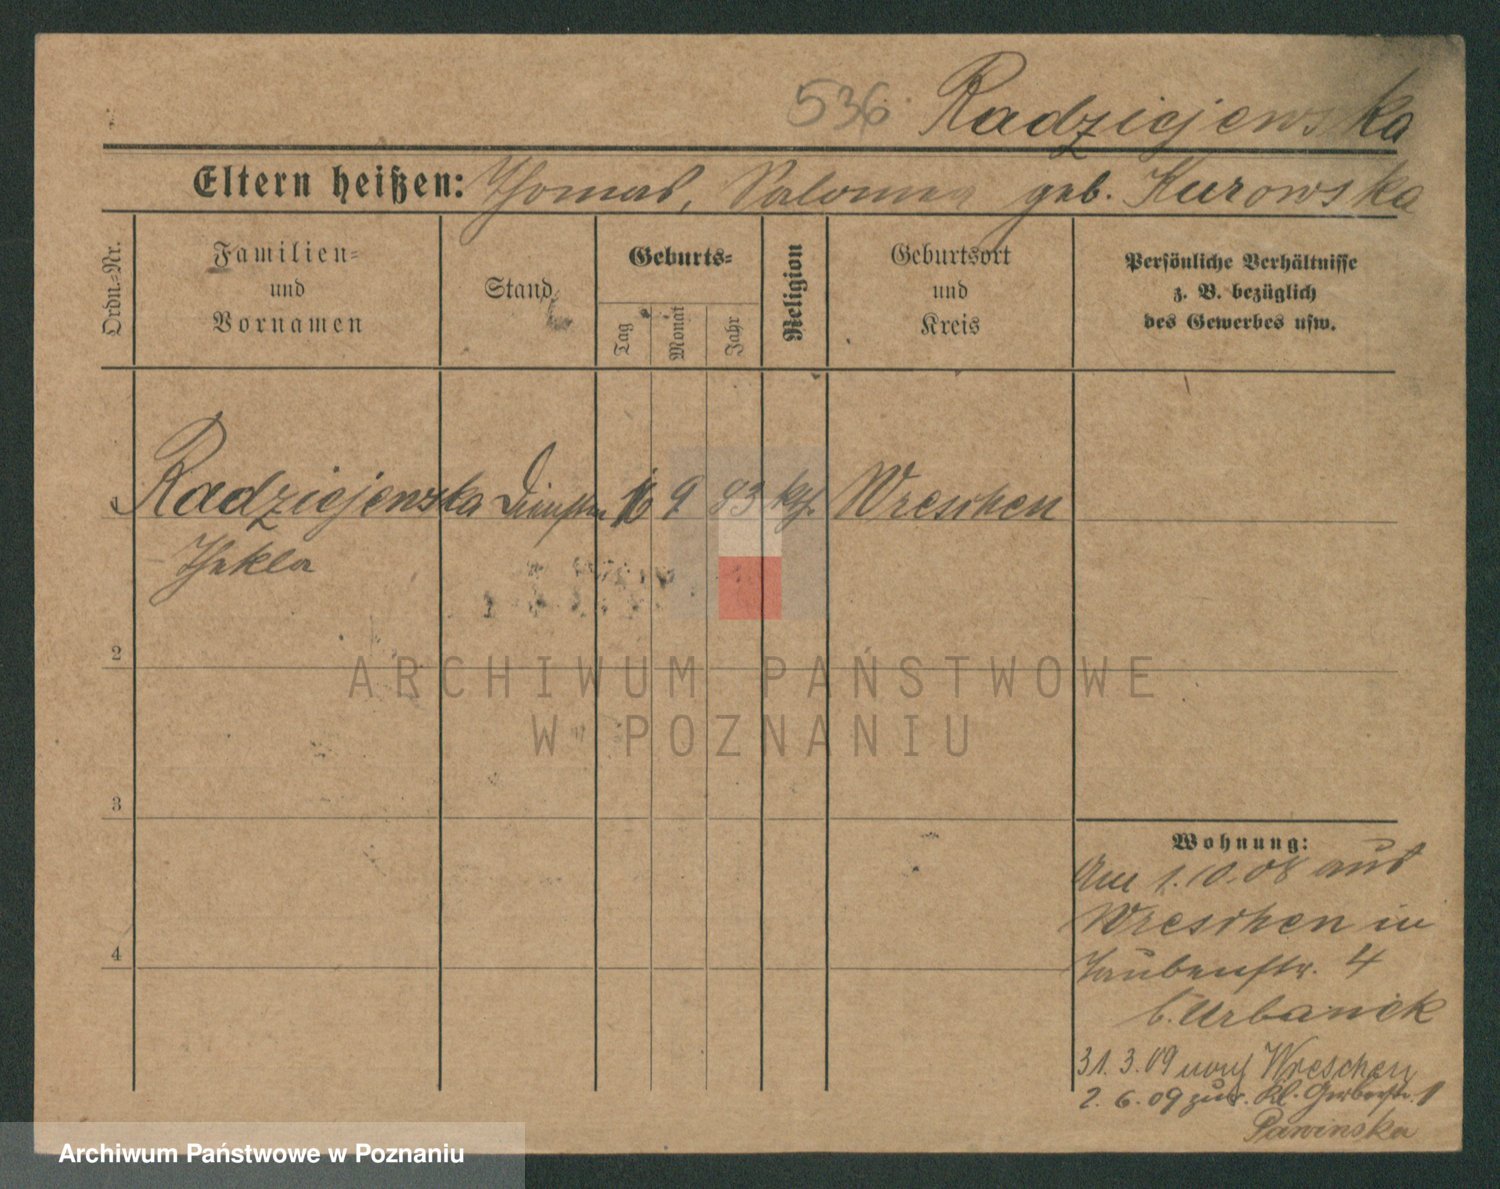 536 Radziejewska
Eltern heißen: Thomas, Salomea geb. Kurowska
Ordn.-Nr.
Familien-
und
Vornamen
Stand
Geburts-
Tag
Monat
Jahr
Religion
Geburtsort
und
Kreis
Persönliche Verhältnisse
z. B. bezüglich
des Gewerbes usw.
1 Radziejewska 9 83 kth. Wreschen
Thekla
2
3
4
Wohnung:
Am 1.10.08 aus
Wreschen in
Taubenstr. 4
b. Urbanek
31.3.09 nach Wreschen
2.6.09 zur. Kl. Gerberstr. 1
Pawinska
ARCHIWUM PAŃSTWOWE
W POZNANIU
Archiwum Państwowe w Poznaniu